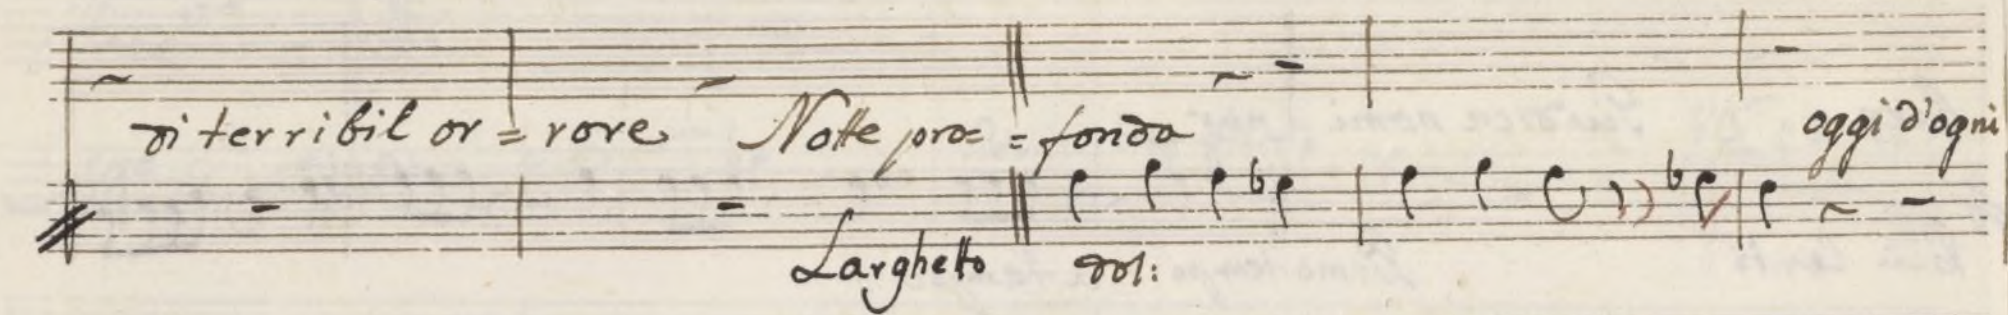 di terribil or = rore Notte pro = = fonda oggi d'ogni
Larghetto dol: